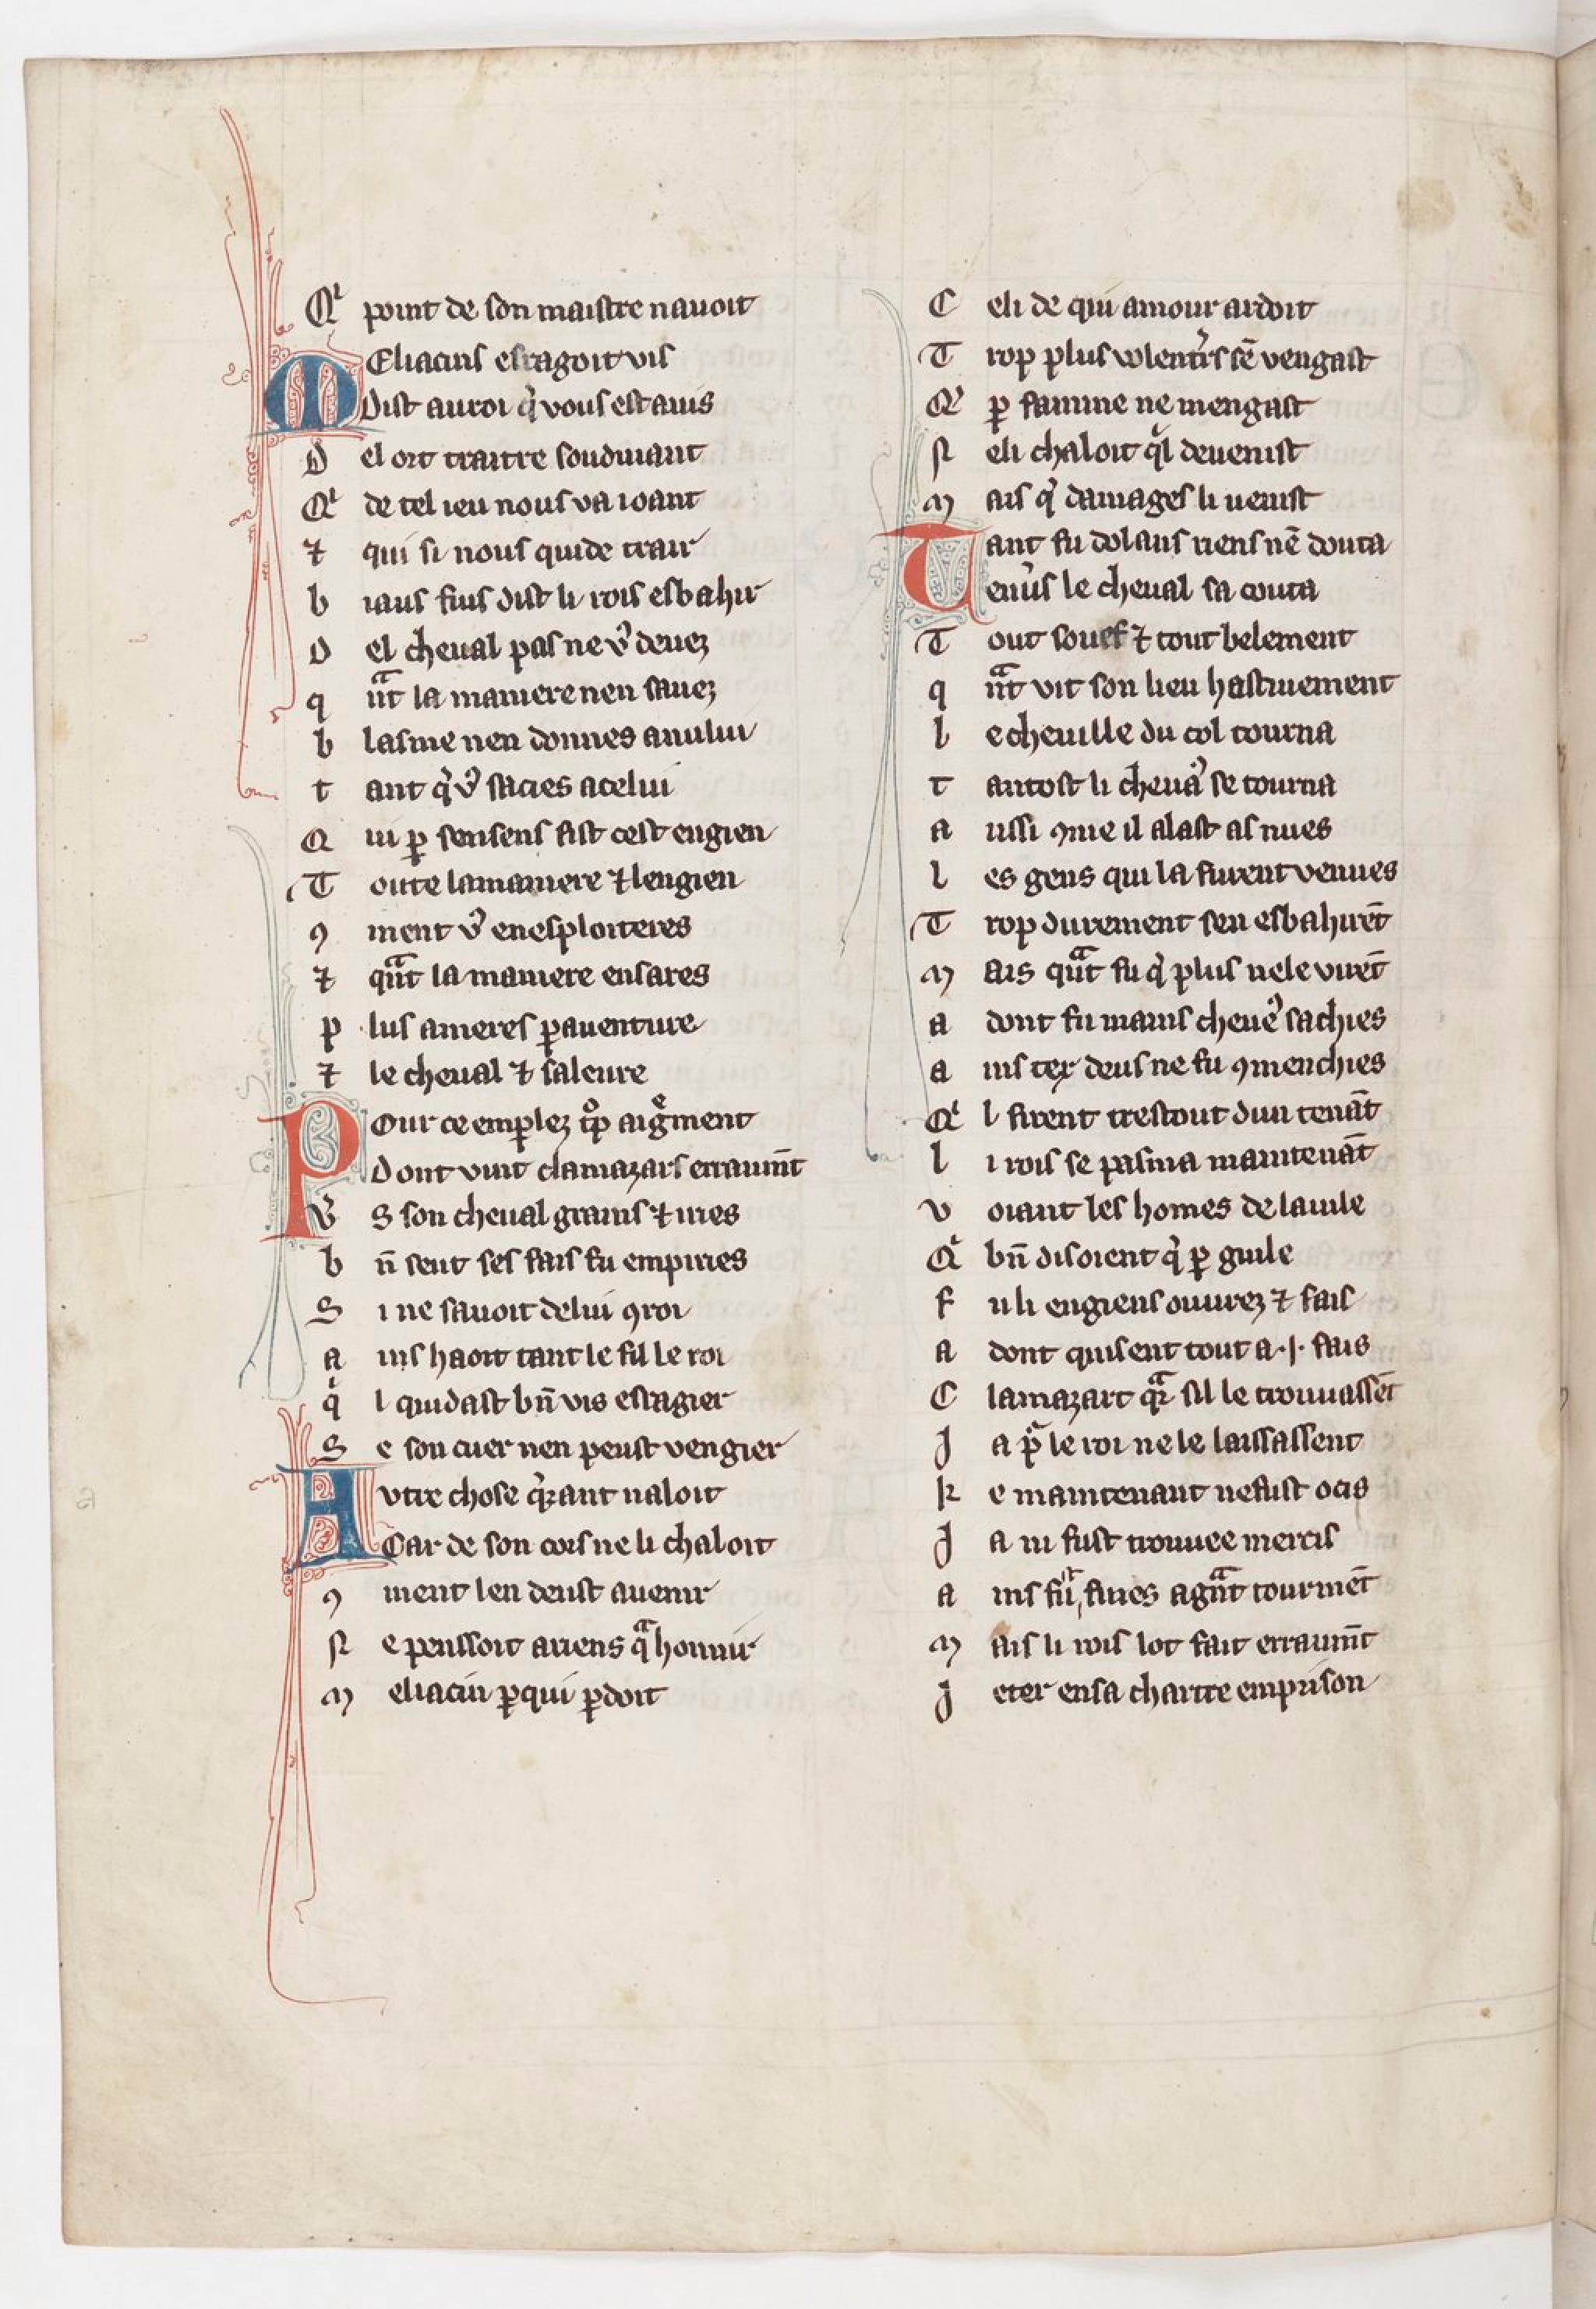 Qͥ point de son maistre nauoit
MEliacins esragoit vis
Dist au roi q̇ vous est auis
Del ort traitre souduiant
Qͥ de tel ieu nous va ioant
⁊ qui si nous quide trair
biaus fius dist li rois esbahir
Del cheual pas ne v̾ deuez
qᵃ̃nt la maniere nen sauez
blasme nen donnes a nului
tant q̇ v̾ sacies a celui
Qui ꝑ son sens fist cest engien
Toute la maniere ⁊ lengien
ꝯment v̾ en esploiteres
⁊ quᵃ̃t la maniere en sares
plus ameres ꝑ auenture
⁊ le cheual ⁊ saleure
POur ce emꝑlez tͦp aigͤment
Dont vint clamazars erraum̃t
v̾s son cheual grains ⁊ iries
bn̄ sent ses fais fu empiries
Si ne sauoit de lui ꝯroi
ains haoit tant le fil le roi
qͥl quidast bn̄ vis esragier
Se son cuer nen peust vengier
AVtre chose q̇rant naloit
Car de son cors ne li chaloit
ꝯment len deust auenir
Ne penssoit a riens qᵃ honnir
Meliacin ꝑ qui ꝑdoit
Celi de qui amour ardoit
Trop plus volent̾rs sē vengast
Qͥ ꝑ famine ne mengast
Ne li chaloit qͥl deuenist
Mais q̇ damages li uenist
Tant fu dolans riens nē douta
Deu̾s le cheual sa couta
Tout souef ⁊ tout belement
qᵃ̃nt vit son lieu hastiuement
le cheuille du col tourna
tantost li cheua̾ se tourna
aussi ꝯme il alast as nues
les gens qui la furent venues
Trop durement sen esbahirēt
Mais quᵃ̃t fu q̇ plus ne le virēt
adont fu mains cheue̾ sachies
ains tex deus ne fu ꝯmenchies
Qͥl firent trestout dun tenāt
li rois se pasma maintenāt
voiant les homes de la uile
Qͥ bn̄ disoient q̇ ꝑ guile
Fu li engiens ouurez ⁊ fais
adont quisent tout a .j. fais
Clamazart qᵃr sil le trouuassēt
Ja pᵃ le roi ne le laissassent
Ke maintenant ne fust ocis
Ja ni fust trouuee mercis
ains fu ꝉt finés a gᵃ̃nt tourmēt
Mais li rois lot fait erraum̃t
Jeter en sa chartre em prison